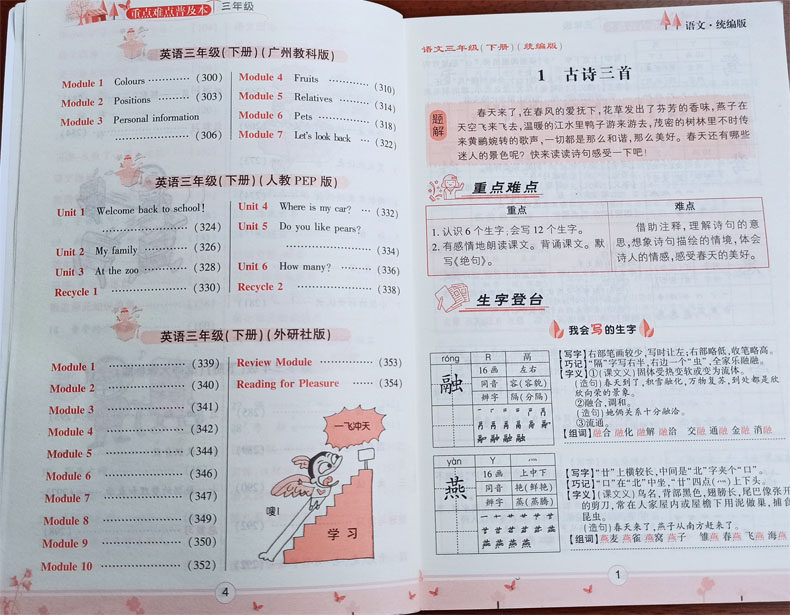 重点难点普及本 三年级
英语三年级(下册)(广州教科版)
Module 1 Colours ………… (300)
Module 2 Positions ………… (303)
Module 3 Personal information
………… (306)
Module 4 Fruits ………… (310)
Module 5 Relatives ………… (314)
Module 6 Pets ………… (318)
Module 7 Let's look back … (322)
英语三年级(下册)(人教 PEP 版)
Unit 1 Welcome back to school!
………… (324)
Unit 2 My family ………… (326)
Unit 3 At the zoo ………… (328)
Recycle 1 ………… (330)
Unit 4 Where is my car? … (332)
Unit 5 Do you like pears?
………… (334)
Unit 6 How many? ………… (336)
Recycle 2 ………… (338)
英语三年级(下册)(外研社版)
Module 1 ………… (339)
Module 2 ………… (340)
Module 3 ………… (341)
Module 4 ………… (342)
Module 5 ………… (344)
Module 6 ………… (346)
Module 7 ………… (347)
Module 8 ………… (349)
Module 9 ………… (350)
Module 10 ………… (352)
Review Module ………… (353)
Reading for Pleasure ………… (354)
一飞冲天
嗖!
学习
4
语文·统编版
语文三年级(下册)(统编版)
1 古诗三首
题解
春天来了,在春风的爱抚下,花草发出了芬芳的香味,燕子在
天空飞来飞去,温暖的江水里鸭子游来游去,茂密的树林里不时传
来黄鹂婉转的歌声,一切都是那么和谐,那么美好。春天还有哪些
迷人的景色呢?快来读读诗句感受一下吧!
重点难点
重点
1. 认识6个生字,会写12个生字。
2. 有感情地朗读课文。背诵课文。默
写《绝句》。
难点
借助注释,理解诗句的意
思,想象诗句描绘的情境,体会
诗人的情感,感受春天的美好。
生字登台
我会写的生字
róng R 鬲
融
16画 左右
同音 容(容貌)
辨字 隔(分隔)
【写字】右部笔画较少,写时让左;右部略低,收笔略高。
【巧记】“隔”字写右半,右边一个“虫”,全家乐融融。
【字义】①(课文义)固体受热变软或变为流体。
(造句)春天到了,积雪融化,万物复苏,到处都是欣
欣向荣的景象。
②融合,调和。
(造句)她俩关系十分融洽。
③流通。
【组词】融合 融化 融解 融洽 交融 通融 金融 消融
yàn Y 灬
燕
16画 上中下
同音 艳(鲜艳)
辨字 蒸(蒸腾)
【写字】“廿”上横较长,中间是“北”字夹个“口”。
【巧记】“口”在“北”中坐,“廿”四点(灬)上下头。
【字义】(课文义)鸟名,背部黑色,翅膀长,尾巴像张开
的剪刀,常在人家屋内或屋檐下用泥做巢,捕食
昆虫。
(造句)春天来了,燕子从南方赶来了。
【组词】燕麦 燕雀 燕窝 燕子 雏燕 春燕 飞燕 海燕
1